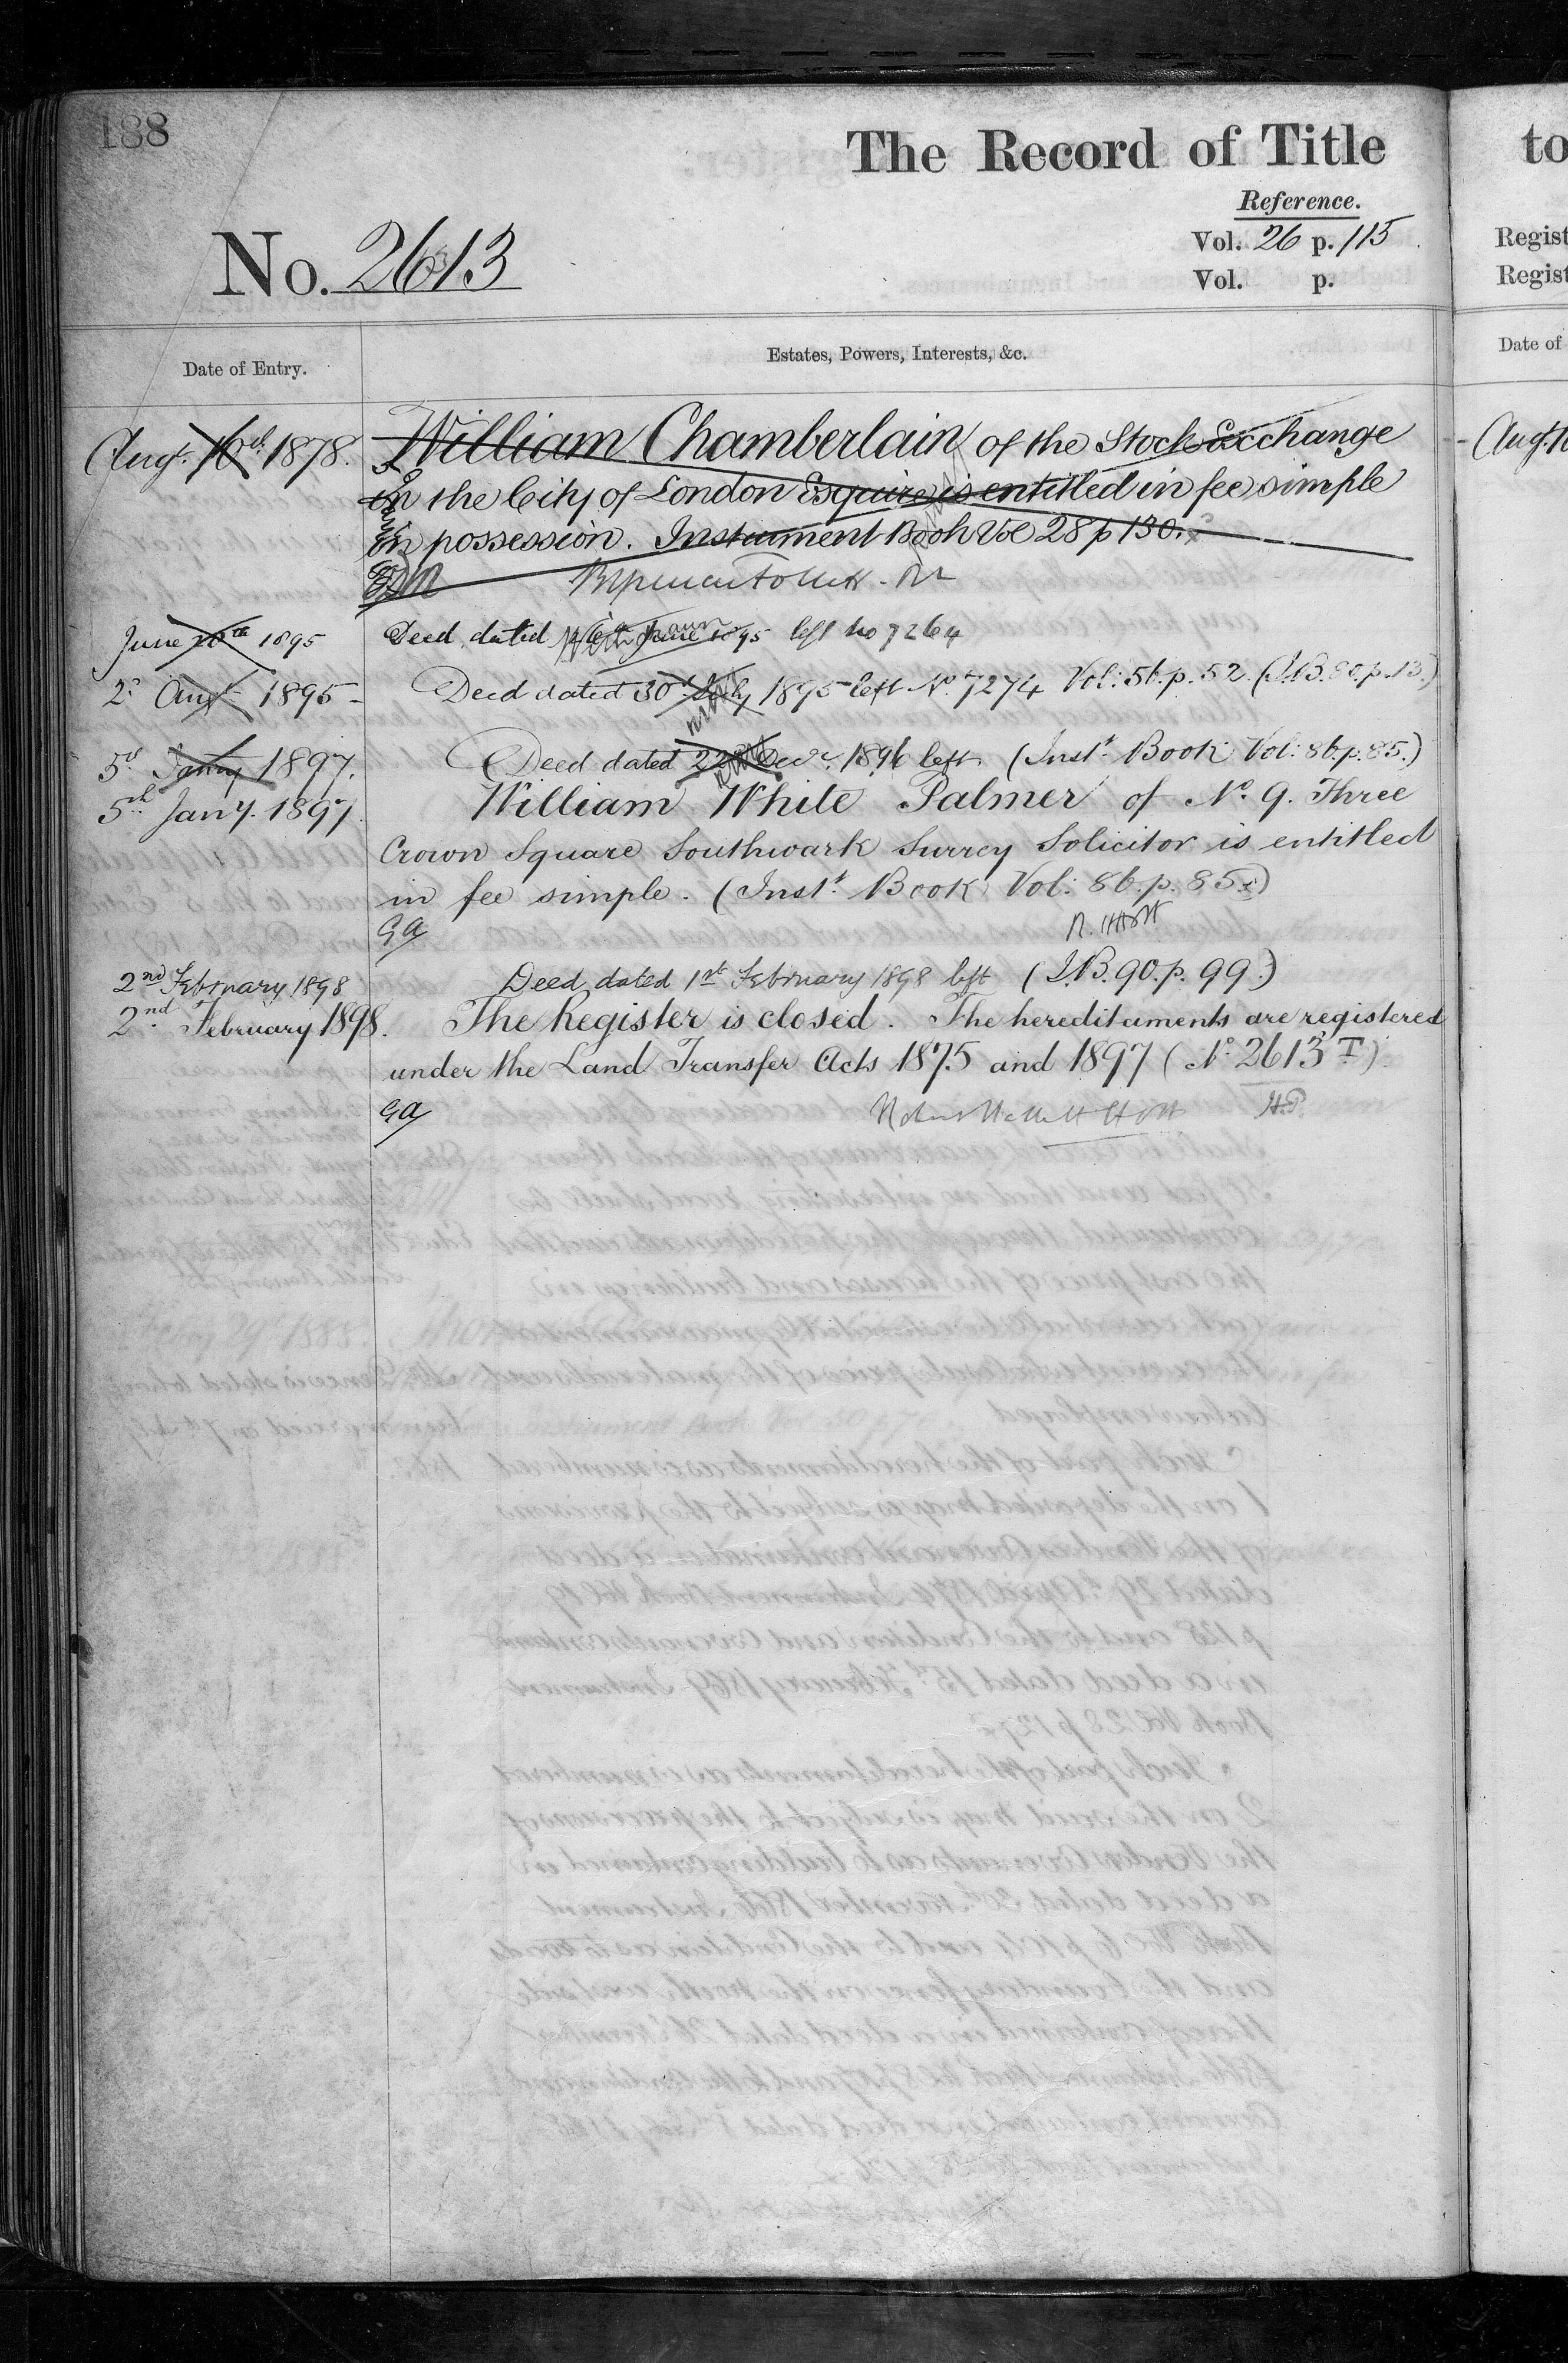 188
The Record of Title
to
Reference.
Vol. 26 p. 115
Vol. p.
Regist
Regist
No. 2613
Date of Entry.
Estates, Powers, Interests, &c.
Date of
Aug. 10th 1878. William Chamberlain of the Stock Exchange
Aug. 10
in the City of London Esquire is entitled in fee simple
in possession. Instrument Book Vol 28 p 130.
June 1895 Deed dated June 1895 left No 7264
2d Aug 1895 Deed dated 30th July 1895 left No. 7274 Vol: 56. p. 52. (I.B. 80. p. 13.)
5th Jany 1897. Deed dated 22d Decr. 1896 left (Inst. Book Vol: 86. p. 85.)
5th Jany. 1897. William White Palmer of No. 9. Three
Crown Square Southwark Surrey Solicitor is entitled
in fee simple. (Inst. Book Vol: 86. p. 85.)
GA
R. H. Holt
2nd February 1898 Deed dated 1st February 1898 left (I.B. 90. p. 99.)
2nd February 1898. The Register is closed. The hereditaments are registered
under the Land Transfer Acts 1875 and 1897 (No. 2613T)
GA
Robert Hallett Holt